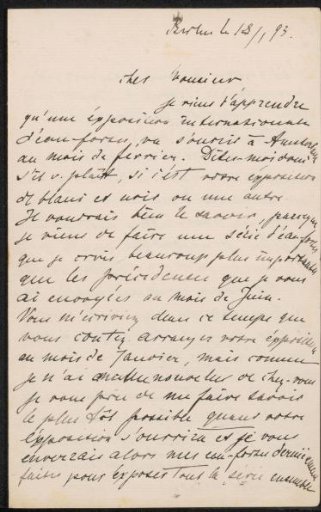 Berlin le 18/1, 93.
cher Monsieur
je viens d'apprendre
qu'une éxposition internationale
d'eau-fortes, va s'ouvrir à Amsterdam
au mois de fevrier. Dites-moi donc
s'il v. plait, si c'est votre éxposition
de blanc et noir ou une autre
Je voudrais bien le savoir, parceque
je viens de faire une série d'eau-fortes
que je crois beaucoup plus importante
que les précédences que je vous
ai envoyées au mois de Juin.
Vous m'écriviez dans ce temps que
vous comtiez arranger votre éxposition
au mois de Janvier, mais comme
je n'ai aucune nouvelles de chez-vous
je vous prie de me faire savoir
le plus tôt possible quand votre
éxposition s'ouvrira et je vous
enverrais alors mes eau-fortes dernièrement
faites pour exposer tout la série ensemble